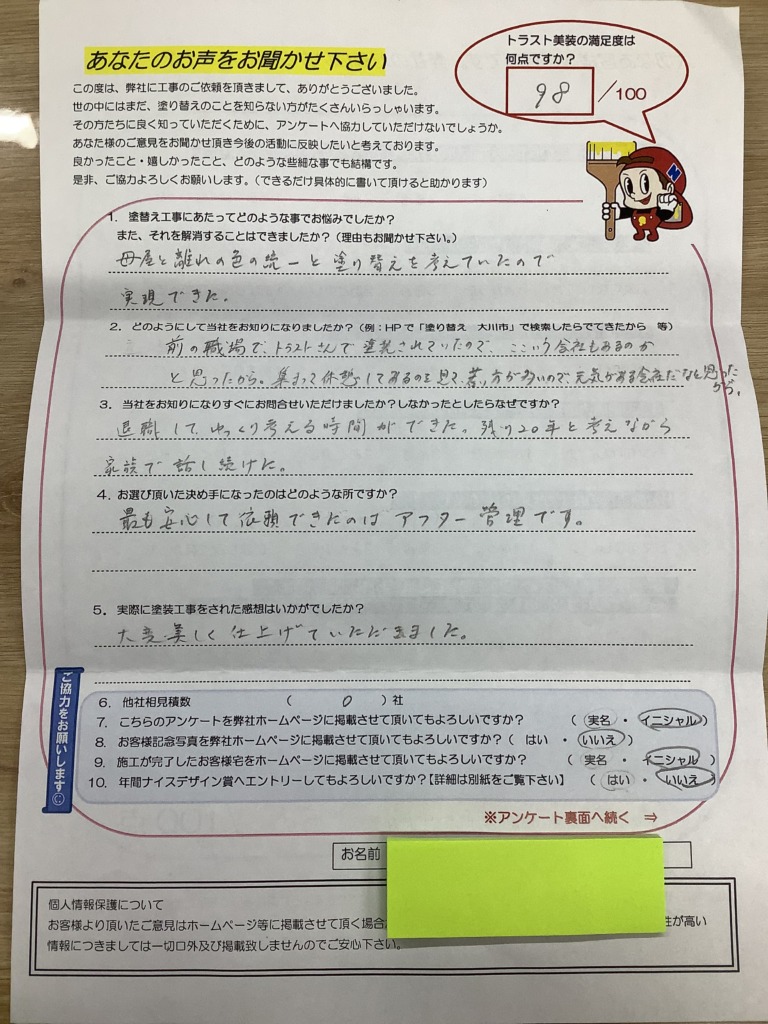 あなたのお声をお聞かせ下さい
トラスト美装の満足度は
何点ですか？
98 /100
この度は、弊社に工事のご依頼を頂きまして、ありがとうございました。
世の中にはまだ、塗り替えのことを知らない方がたくさんいらっしゃいます。
その方たちに良く知っていただくために、アンケートへ協力していただけないでしょうか。
あなた様のご意見をお聞かせ頂き今後の活動に反映したいと考えております。
良かったこと・嬉しかったこと、どのような些細な事でも結構です。
是非、ご協力よろしくお願いします。（できるだけ具体的に書いて頂けると助かります）
1. 塗替え工事にあたってどのような事でお悩みでしたか？
また、それを解消することはできましたか？（理由もお聞かせ下さい。）
母屋と離れの色の統一と塗り替えを考えていたので
実現できた。
2. どのようにして当社をお知りになりましたか？（例：HPで「塗り替え 大川市」で検索したらでてきたから 等）
前の職場で、トラストさんで塗装されていたので、こういう会社もあるのか
と思ったから。集まって休憩してあるのを見て、若い方が多いので、元気がある会社だなと思った
から。
3. 当社をお知りになりすぐにお問合せいただけましたか？しなかったとしたらなぜですか？
退職して、ゆっくり考える時間ができた。残り20年と考えながら
家族で話し続けた。
4. お選び頂いた決め手になったのはどのような所ですか？
最も安心して依頼できたのはアフター管理です。
5. 実際に塗装工事をされた感想はいかがでしたか？
大変美しく仕上げていただきました。
ご協力をお願いします☺
6. 他社相見積数 （ 0 ）社
7. こちらのアンケートを弊社ホームページに掲載させて頂いてもよろしいですか？ （ 実名 ・ イニシャル ）
8. お客様記念写真を弊社ホームページに掲載させて頂いてもよろしいですか？（ はい ・ いいえ ）
9. 施工が完了したお客様宅をホームページに掲載させて頂いてもよろしいですか？ （ 実名 ・ イニシャル ）
10. 年間ナイスデザイン賞へエントリーしてもよろしいですか？【詳細は別紙をご覧下さい】 （ はい ・ いいえ ）
※アンケート裏面へ続く ⇒
お名前
個人情報保護について
お客様より頂いたご意見はホームページ等に掲載させて頂く場合 性が高い
情報につきましては一切口外及び掲載致しませんのでご安心下さい。